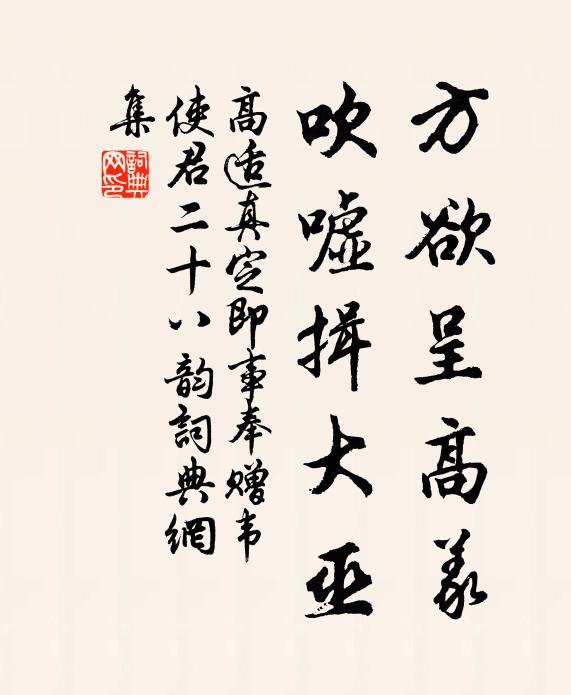 方欲呈高義
吹噓揖大巫
高適真定即事奉贈韦
使君二十八韵詞典網
集
詞典
网印